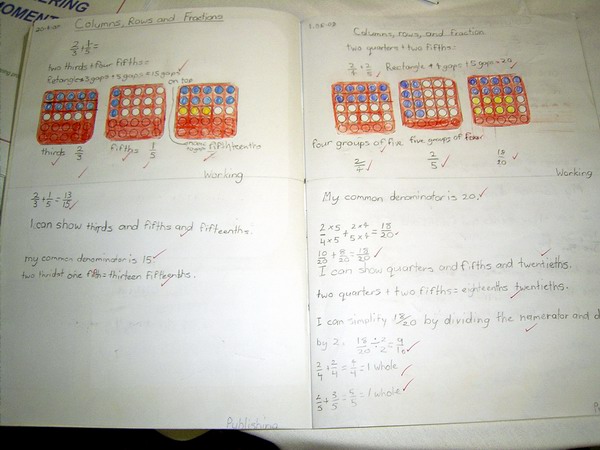 ERING
MOMENT
Columns, Rows and Fractions
2/3 + 1/5 =
two thirds + four fifths =
Retangle 3 gaps + 5 gaps = 15 gaps
on top
thirds 2/3
fifths 1/5
fifteenths
Working
2/3 + 1/5 = 13/15
I can show thirds and fifths and fifteenths.
my common denominator is 15
= thirteen fifteenths.
Publishing
Columns, rows, and fraction
two quarters + two fifths =
2/4 + 2/5 Rectangle 4 gaps + 5 gaps = 20
four groups of five
five groups of four
2/4
2/5
18/20
Working
My common denominator is 20.
2 × 5 / 4 × 5 + 2 × 4 / 5 × 4 = 18/20
10/20 + 8/20 = 18/20
I can show quarters and fifths and twentieths.
two quarters + two fifths = eighteenths twentieths.
I can simplify 18/20 by dividing the namerator and d
by 2. 18/20 ÷ 2/2 = 9/10
2/4 + 2/4 = 4/4 = 1 whole
2/5 + 3/5 = 5/5 = 1 whole
Pu